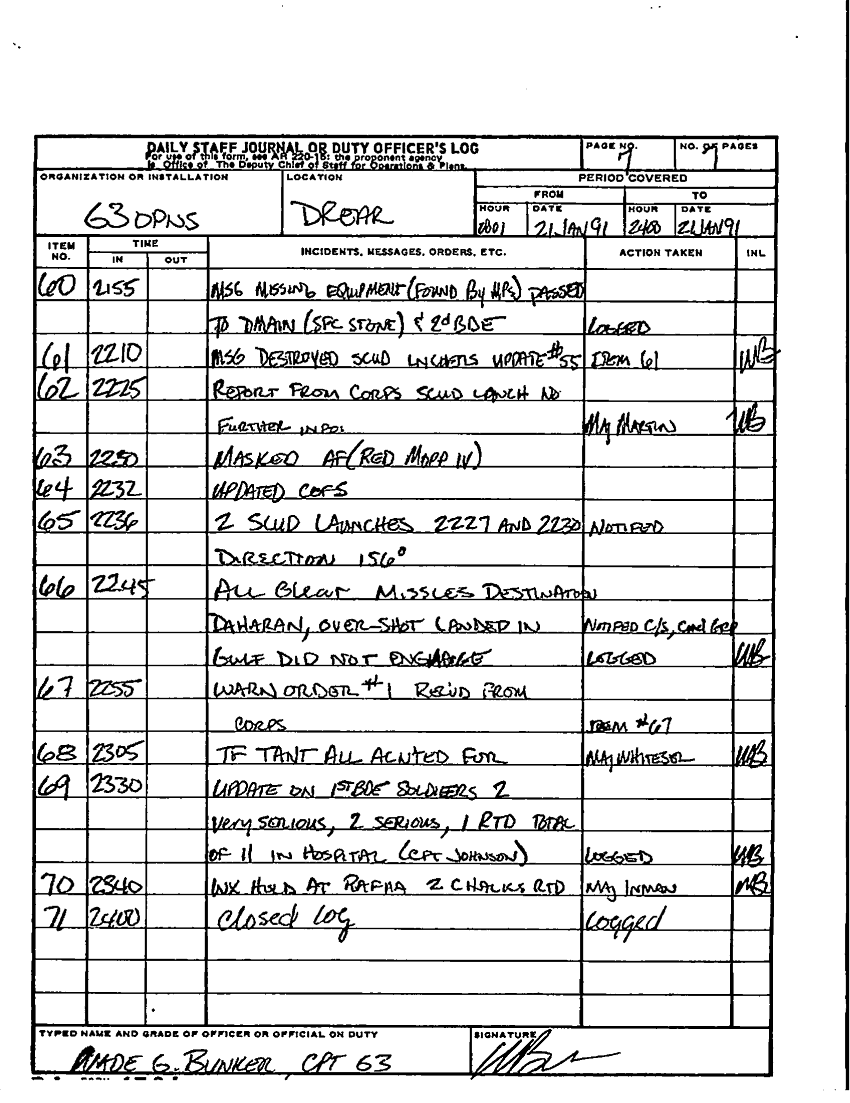 DAILY STAFF JOURNAL OR DUTY OFFICER'S LOG
For use of this form, see AR 220-15; the proponent agency
is Office of The Deputy Chief of Staff for Operations & Plans.
PAGE NO. 7
NO. OF PAGES 7
ORGANIZATION OR INSTALLATION
G3 OPNS
LOCATION
DREAR
PERIOD COVERED
FROM TO
HOUR DATE HOUR DATE
0001 21 JAN 91 2400 21 JAN 91
ITEM NO. TIME IN OUT INCIDENTS, MESSAGES, ORDERS, ETC. ACTION TAKEN INL
60 2155 MSG MISSING EQUIPMENT (FOUND By MPs) PASSED
TO DMAIN (SFC STONE) & 2d BDE LOGGED
61 2210 MSG DESTROYED SCUD LNCHERS UPDATE #55 ITEM 61 WB
62 2225 REPORT FROM CORPS SCUD LANCH NO
FURTHER INFO: MAJ MARTIN WB
63 2230 MASKED AF (RED MOPP IV)
64 2232 UPDATED COFS
65 2236 2 SCUD LAUNCHES 2227 AND 2230 NOTIFED
DIRECTION 156°
66 2245 ALL Clear MISSLES DESTINATON
DAHARAN, OVER-SHOT LANDED IN NOTIFED C/S, Cmd GRP
GULF DID NOT ENGAGE LOGGED WB
67 2255 WARN ORDER #1 REC'D FROM
CORPS ITEM #67
68 2305 TF TANT ALL ACNTED FOR MAJ WHITESEL WB
69 2330 UPDATE ON 1ST BDE SOLDIERS 2
Very SERIOUS, 2 SERIOUS, 1 RTD TOTAL
OF 11 IN HOSPITAL (CPT JOHNSON) LOGGED WB
70 2340 WX HOLD AT RAFHA 2 CHALKS RTD MAJ INMAN WB
71 2400 Closed log Logged
TYPED NAME AND GRADE OF OFFICER OR OFFICIAL ON DUTY
WADE G. BUNKER, CPT G3
SIGNATURE